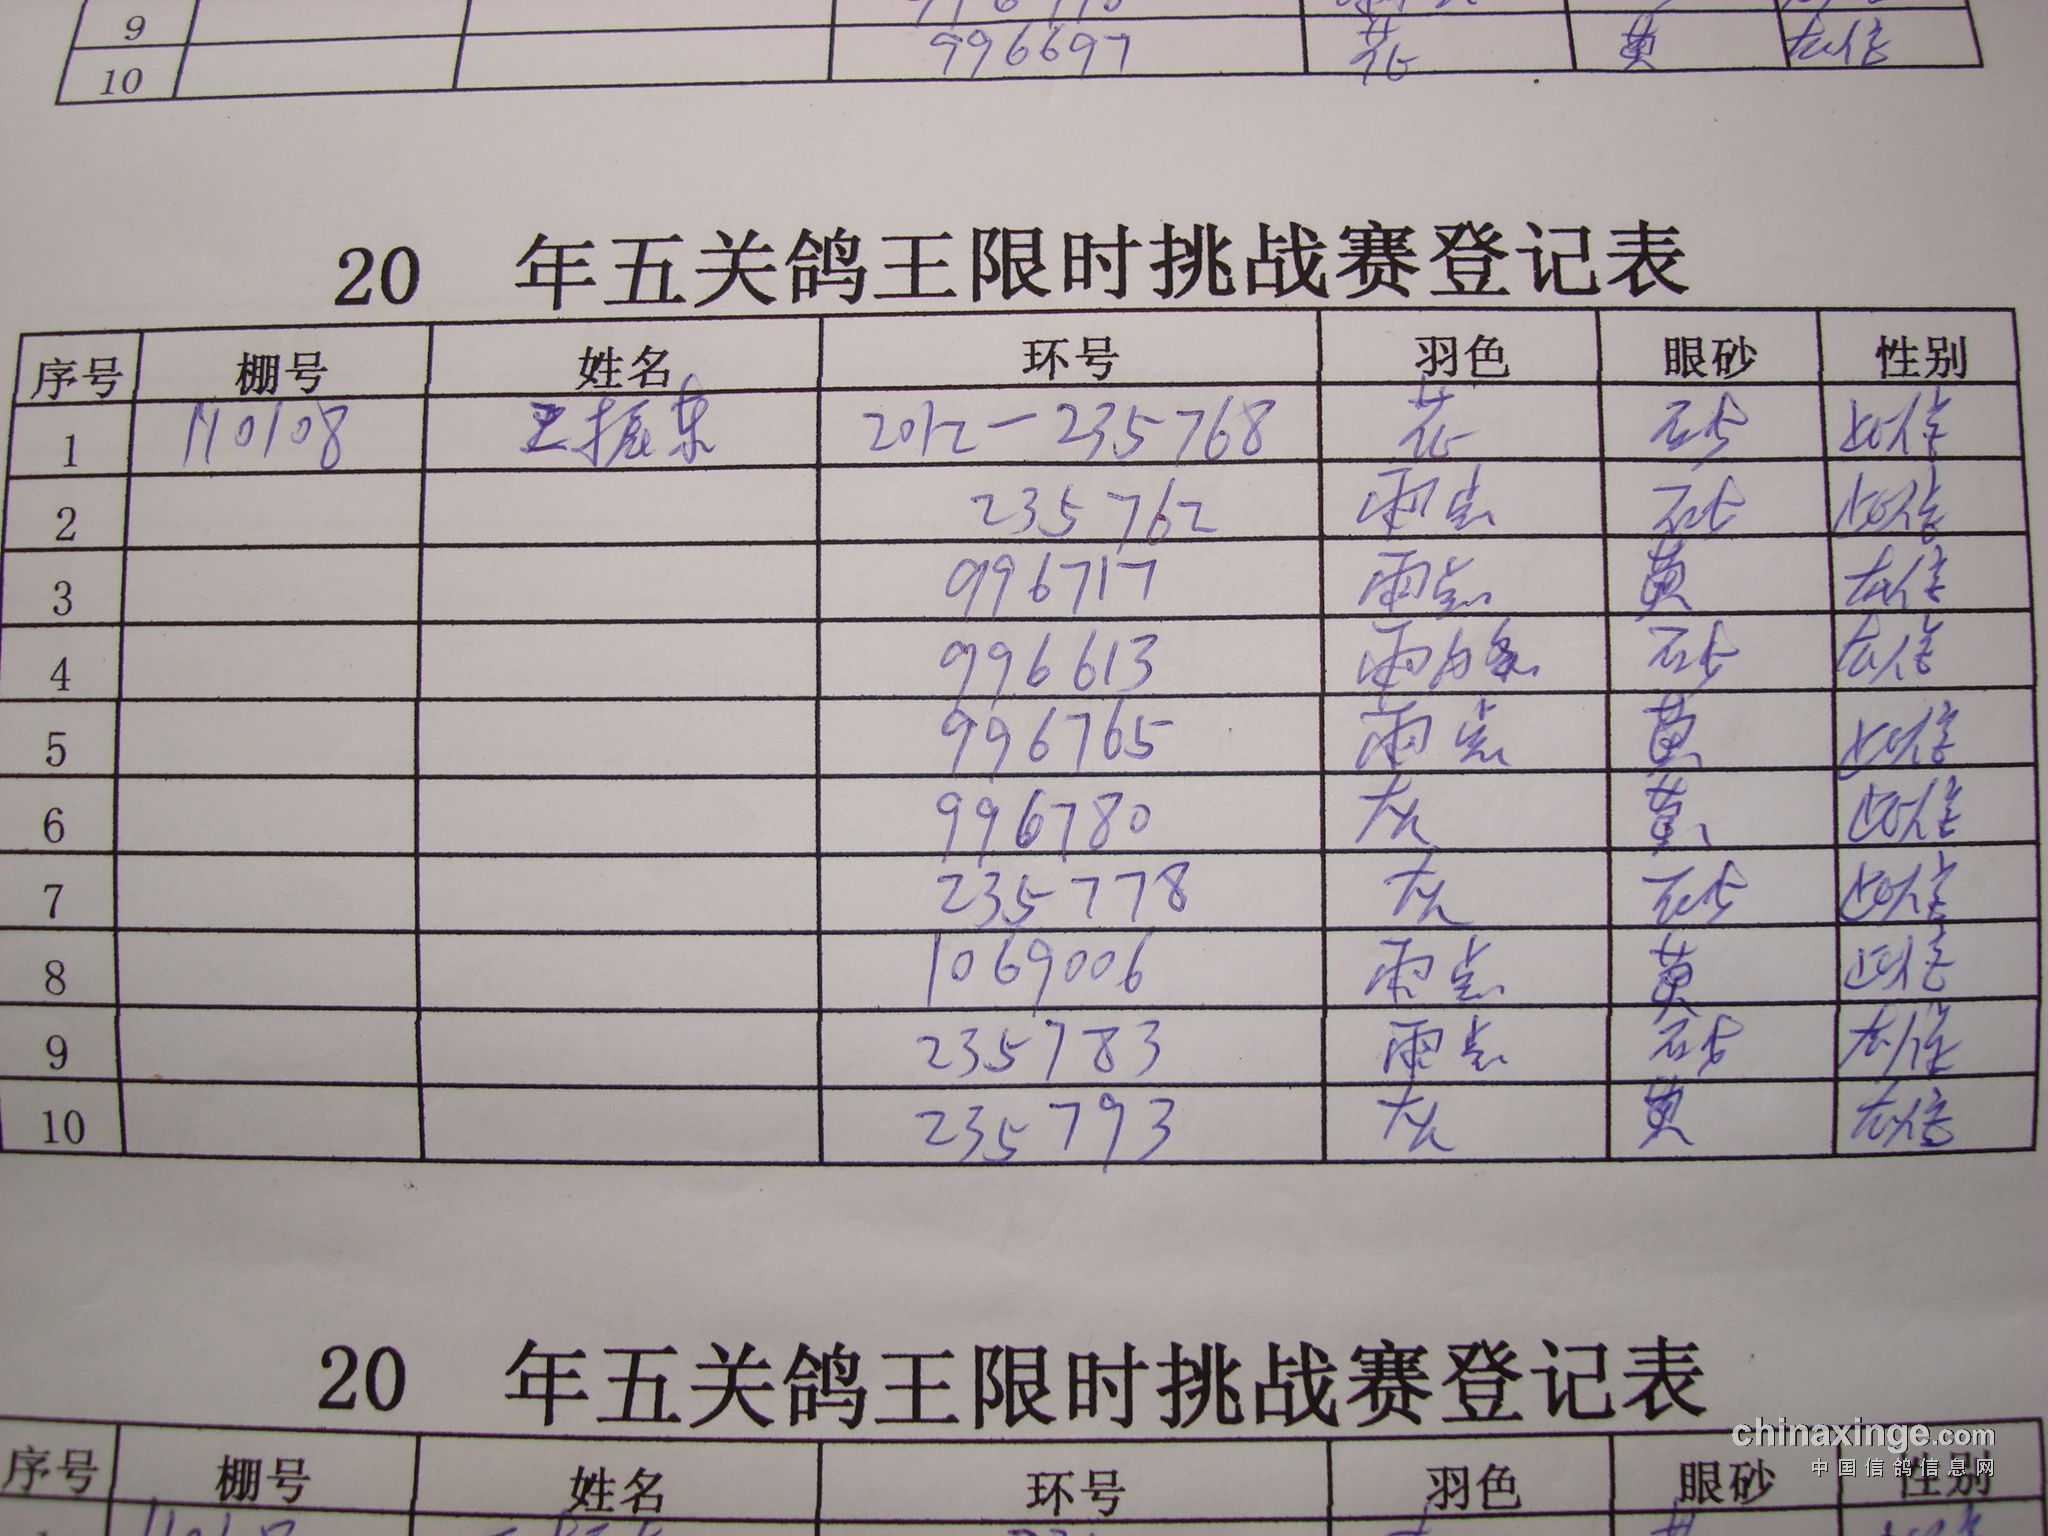 9
10 996697 花 黄 雄
20 年五关鸽王限时挑战赛登记表
序号 棚号 姓名 环号 羽色 眼砂 性别
1 110108 王振东 2012-235768 花 砂 雌
2 235762 雨点 砂 雌
3 996717 雨点 黄 雄
4 996613 雨白条 砂 雄
5 996765 雨点 黄 雌
6 996780 灰 黄 雌
7 235778 灰 砂 雌
8 1069006 雨点 黄 雌
9 235783 雨点 砂 雄
10 235793 灰 黄 雄
20 年五关鸽王限时挑战赛登记表
序号 棚号 姓名 环号 羽色 眼砂 性别
chinaxinge.com
中国信鸽信息网